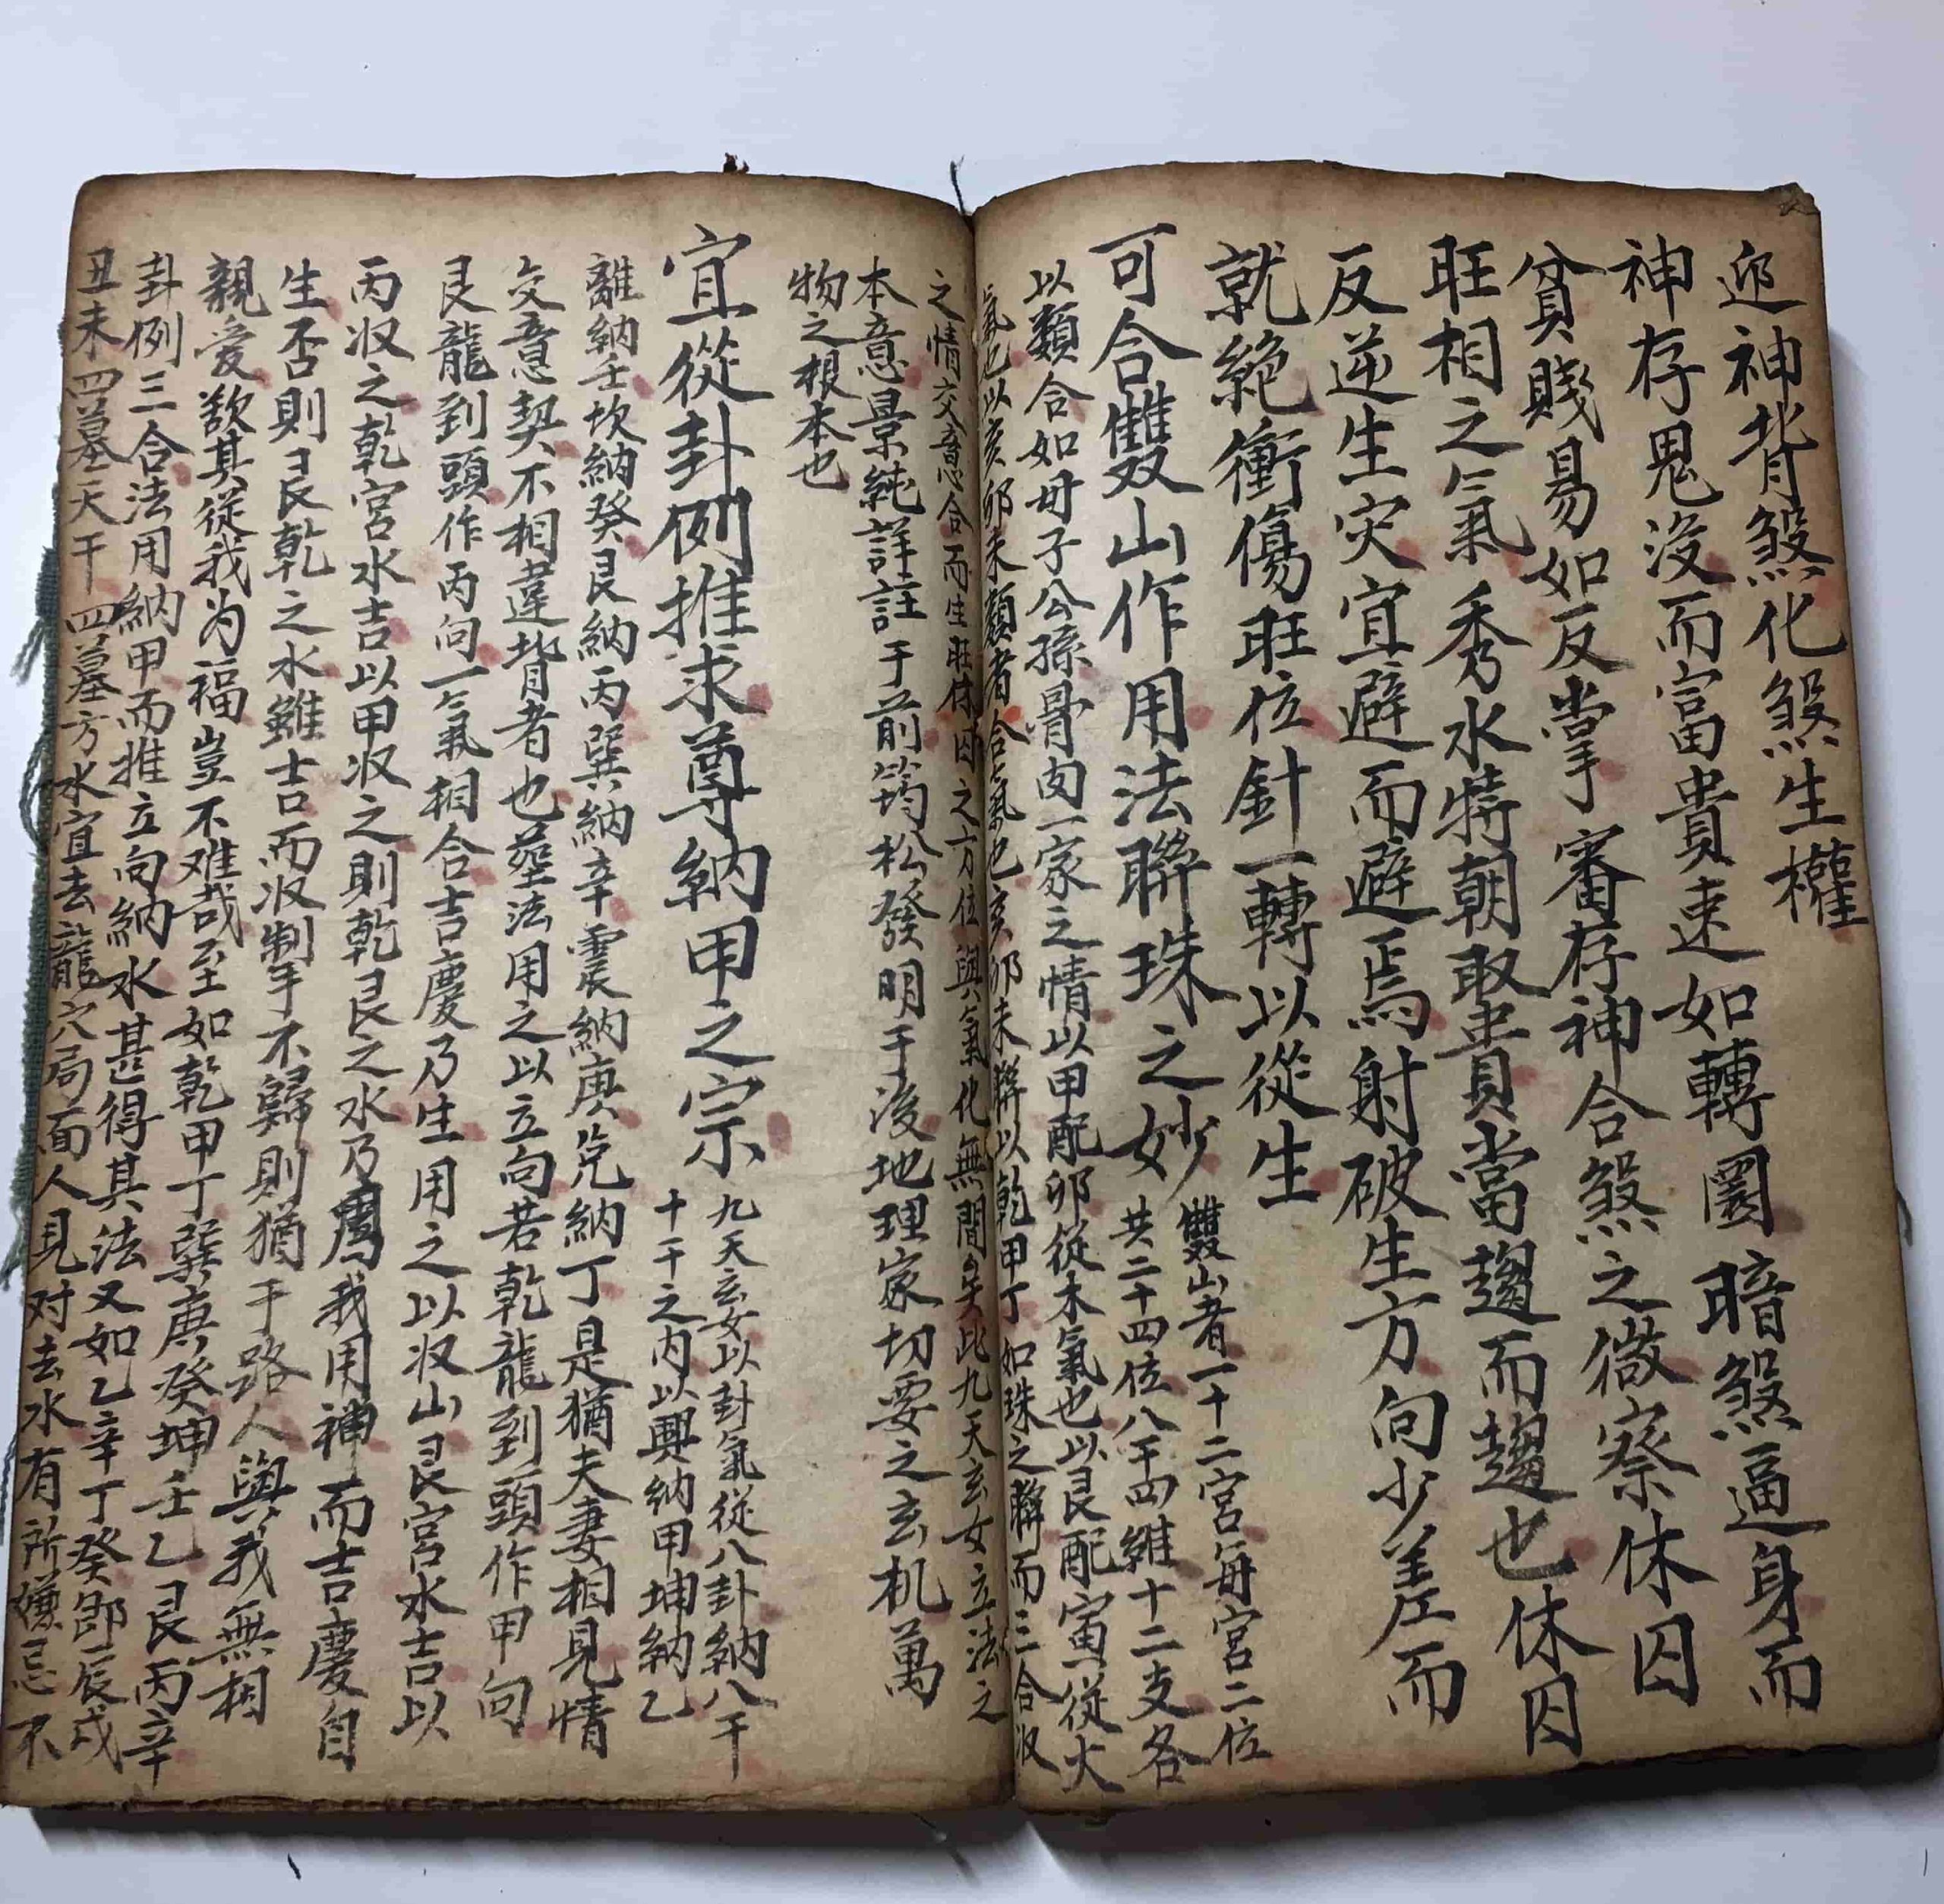 迎神背煞化煞生權
神存鬼沒而富貴速如轉圜暗煞逼身而
貧賤易如反掌審存神合煞之微察休囚
旺相之氣秀水特朝取貴當趨而趨也休囚
反逆生灾宜避而避焉射破生方向少差而
就絶衝傷旺位針一轉以從生
可合雙山作用法聯珠之妙
雙山者一十二宮每宮二位
共二十四位八干四維十二支各
以類合如母子公孫骨肉一家之情以甲配卯從木氣也以艮配寅從火
氣也以亥卯未類者合氣也亥卯未聯以乾甲丁如珠之聯而三合収
之情交意合而生旺休囚之方位與氣化無間矣此九天玄女立法之
本意景純詳註于前筠松發明于後地理家切要之玄机萬
物之根本也
宜從卦例推求尊納甲之宗
九天玄女以卦氣從八卦納八干
十干之内以興納甲坤納乙
離納壬坎納癸艮納丙巽納辛震納庚兌納丁是猶夫妻相見情
交意契不相違背者也塟法用之以立向若乾龍到頭作甲向
艮龍到頭作丙向一氣相合吉慶乃生用之以収山艮宮水吉以
丙収之乾宮水吉以甲収之則乾艮之水乃為我用神而吉慶自
生否則艮乾之水雖吉而収制不歸則猶于路人與我無相
親愛歎其從我为福豈不难哉至如乾甲丁巽庚癸坤壬乙艮丙辛
卦例三合法用納甲而推立向納水甚得其法又如乙辛丁癸即辰戌
丑未四墓天干四墓方水宜去龍穴局面人見对去水有所嫌忌不